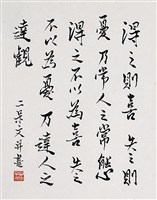 得之则喜失之则
憂乃常人之常態
得之不以為喜失之
不以為憂乃達人之
達觀